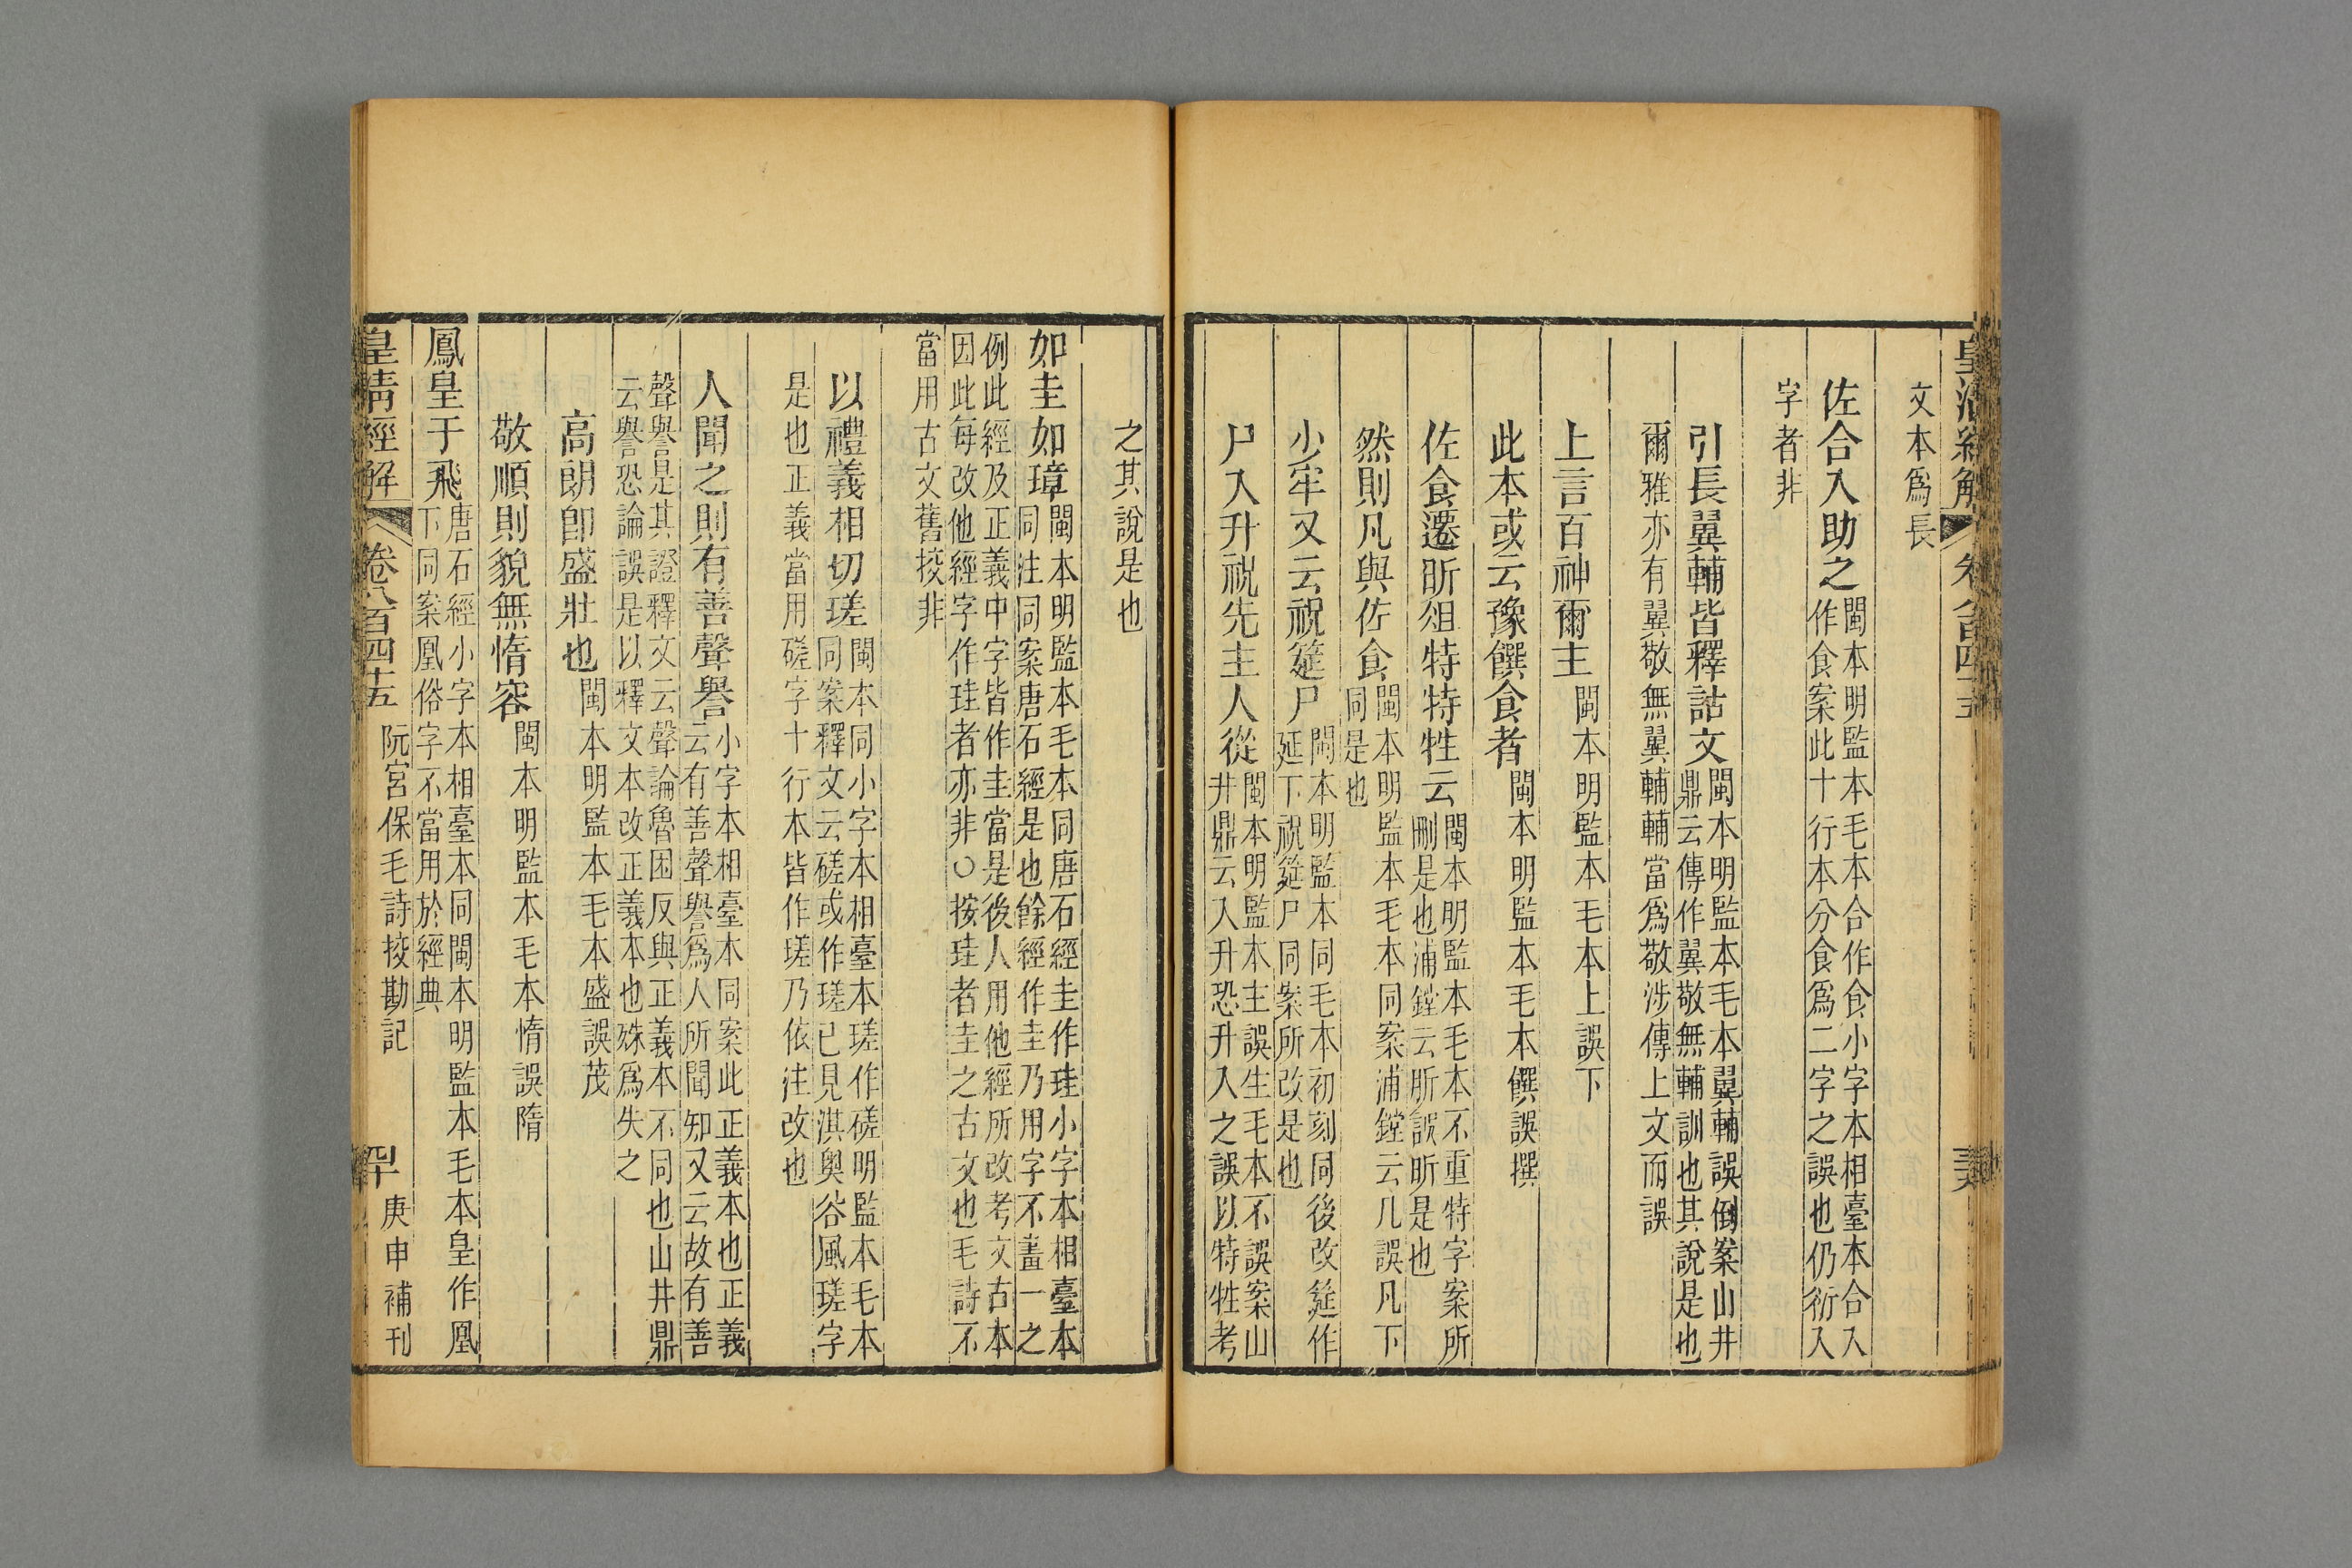 皇清經解
文本爲長
佐合入助之閩本明監本毛本合作食小字本相臺本合入
作食案此十行本分食爲二字之誤也仍衍入
字者非
引長翼輔皆釋詁文閩本明監本毛本翼輔誤倒案山井
鼎云傳作翼敬無輔訓也其說是也
爾雅亦有翼敬無翼輔輔當爲敬涉傳上文而誤
上言百神爾主閩本明監本毛本上誤下
此本或云豫饌食者閩本明監本毛本饌誤撰
佐食遷昕俎特特牲云閩本明監本毛本不重特字案所
刪是也浦鏜云肵誤昕是也
然則凡與佐食閩本明監本毛本同案浦鏜云几誤凡下
同是也
少牢又云祝筵尸閩本明監本同毛本初刻同後改筵作
延下祝筵尸同案所改是也
尸入升祝先主人從閩本明監本主誤生毛本不誤案山
井鼎云入升恐升入之誤以特牲考
之其說是也
如圭如璋閩本明監本毛本同唐石經圭作珪小字本相臺本
同注同案唐石經是也餘經作圭乃用字不畫一之
例此經及正義中字皆作圭當是後人用他經所改考文古本
因此每改他經字作珪者亦非○按珪者圭之古文也毛詩不
當用古文舊挍非
以禮義相切瑳閩本同小字本相臺本瑳作磋明監本毛本
同案釋文云磋或作瑳已見淇奧谷風瑳字
是也正義當用磋字十行本皆作瑳乃依注改也
人聞之則有善聲譽小字本相臺本同案此正義本也正義
云有善聲譽爲人所聞知又云故有善
聲譽是其證釋文云聲論魯困反與正義本不同也山井鼎
云譽恐論誤是以釋文本改正義本也殊爲失之
高朗卽盛壯也閩本明監本毛本盛誤茂
敬順則貌無惰容閩本明監本毛本惰誤隋
鳳皇于飛唐石經小字本相臺本同閩本明監本毛本皇作凰
下同案凰俗字不當用於經典
皇清經解 卷八百四十五 阮宮保毛詩挍勘記 四十 庚申補刊